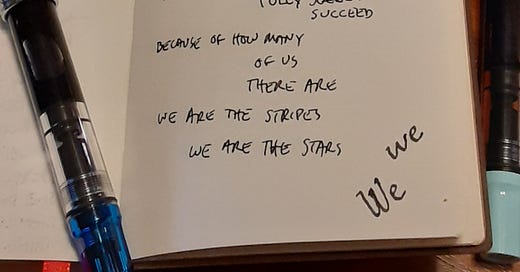 SUCCEED
BECAUSE OF HOW MANY
OF US
THERE ARE
WE ARE THE STRIPES
WE ARE THE STARS
we
We